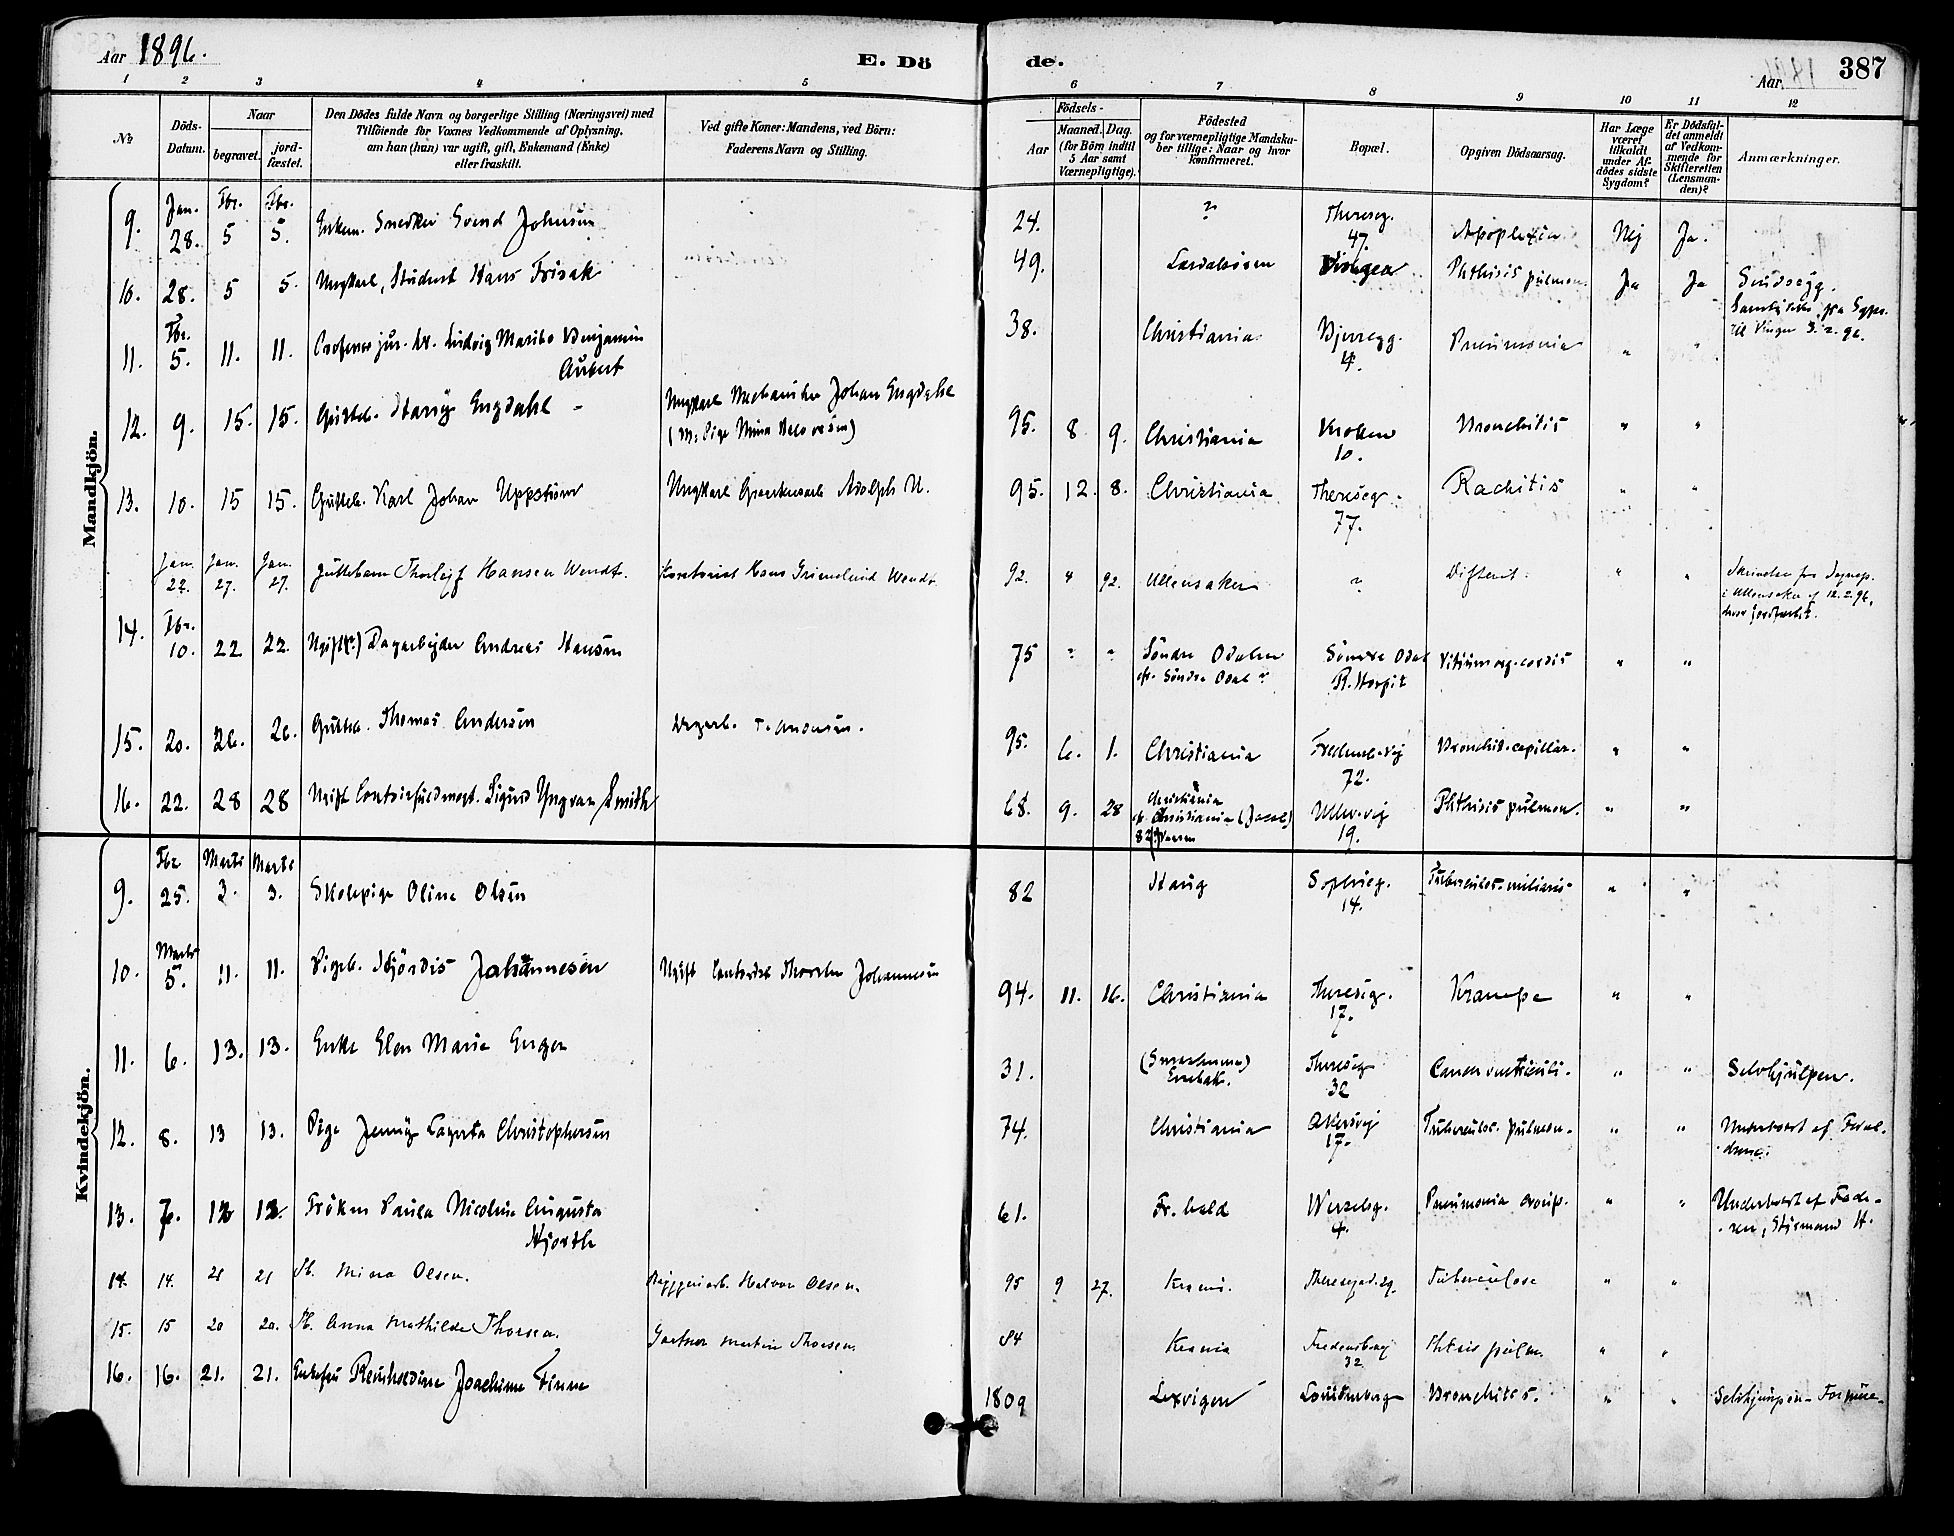 Aar 1896.
E. Dö
de.
Aar
387
1 2 3 4 5 6 7 8 9 10 11 12
No
Döds-Datum.
Naar
begravet.
jord-fæstet.
Den Dödes fulde Navn og borgerlige Stilling (Næringsvei) med
Tilföiende for Voxnes Vedkommende af Oplysning,
om han (hun) var ugift, gift, Enkemand (Enke)
eller fraskilt.
Ved gifte Koner: Mandens, ved Börn:
Faderens Navn og Stilling.
Födsels-
Aar
Maaned. Dag.
(for Börn indtil
5 Aar samt
Værnepligtige).
Födested
og for værnepligtige Mandsku-
ber tillige: Naar og hvor
konfirmeret.
Bopæl.
Opgiven Dödsaarsag.
Har Læge
været
tilkaldt
under Af-
dödes sidste
Sygdom?
Er Dödsfal-
det anmeldt
af Vedkom-
mende for
Skifteretten
(Lensman-
den)?
Anmærkninger.
Mandkjön.
Jan. Fbr. Fbr.
9. 28. 5 5. Enkem. Snedker Svend Johnsen 24. ? Thereseg. 47. Apoplexia Nej Ja.
10. 28. 5 5. Ungkarl, Student Hans Frisak 49. Lærdalsören Phthisis pulmon. Ja Ja Sindssyg.
til Vinger 3.2.96.
Fbr.
11. 5. 11. 11. Professor jur. Dr. Ludvig Maribo Benjamin
Aubert 38. Christiania Bjerregg. 4. Pneumonia " "
12. 9. 15. 15. Gutteb. Harry Engdahl - Ungkarl Mechaniker Johan Engdahl
95. 8 9. Christiania Kroken 10. Bronchitis " "
13. 10. 15 15. Gutteb. Karl Johan Uppström Ungkarl Adolph U. 95. 12. 8. Christiania Thereseg. 77. Rachitis " "
Jan. 22. Jan. 27. Jan. 27. Guttebarn Thorleif Hansen Wendt. Hans Grimelund Wendt. 92. 4 92. Ullensaker ? Difterit. " "
i Ullensaker af 12.2.96,
hvor jordfæstet.
14. Fbr. 10. 22 22. Ugift(?) Dagarbejder Andreas Hansen 75 ? " Söndre Odalen
Söndre Odal ? Söndre Odal
R. Hospit Vitium org. cordis " "
15. 20. 26. 26. Gutteb. Thomas Andersen 95. 6. 1. Christiania 72. Bronchit. capillar. " "
16. 22. 28 28 Ugift Contorfuldmægt. Sigurd Yngvar Smith 68. 9. 28 Christiania
Christiania (Jacob)
Ullev.vej 19. Phthisis pulmon. " "
Kvindekjön.
Fbr. Marts Marts
9. 25. 3. 3. Skolepige Oline Olsen 82 Haug Sophieg. 14. Tuberculos. miliaris " "
Marts
10. 5. 11. 11. Pigeb. Hjördis Johannesen Ugift Contorist Thorolv Johannesen 94. 11. 16. Christiania Thereseg. 17. Krampe " "
11. 6. 13. 13. Enke Elen Marie Enger 31. Enebak. Thereseg. 32 Cancer ventriculi. " " Selvhjulpen.
12. 8. 13 13. Pige Jenny Lagerta Christophersen 74. Christiania Akersvej 17. Tuberculos. pulmon. " " Underholdt af Foræl-
drene.
13. 7. 12 12. Fröken Paula Nicoline Augusta
Hjorth 61. Fr.hald Wesselsg. 4. Pneumonia croup. " " Underholdt af Fade-
ren, Styrmand H.
14. 14. 21 21 Pb. Mina Olsen. Halvor Olsen. 95 9 27. Krania. Theresegd. 29. Tuberculose " "
15. 15 20 20. Pb. Anna Mathilde Thorsen. Gartner Martin Thorsen. 84 Krania 32 Phtisis pulm. " "
16. 16. 21. 21. Enkefru Reinholdine Joachime Finne 1809 Lexvigen Bronchites. " "